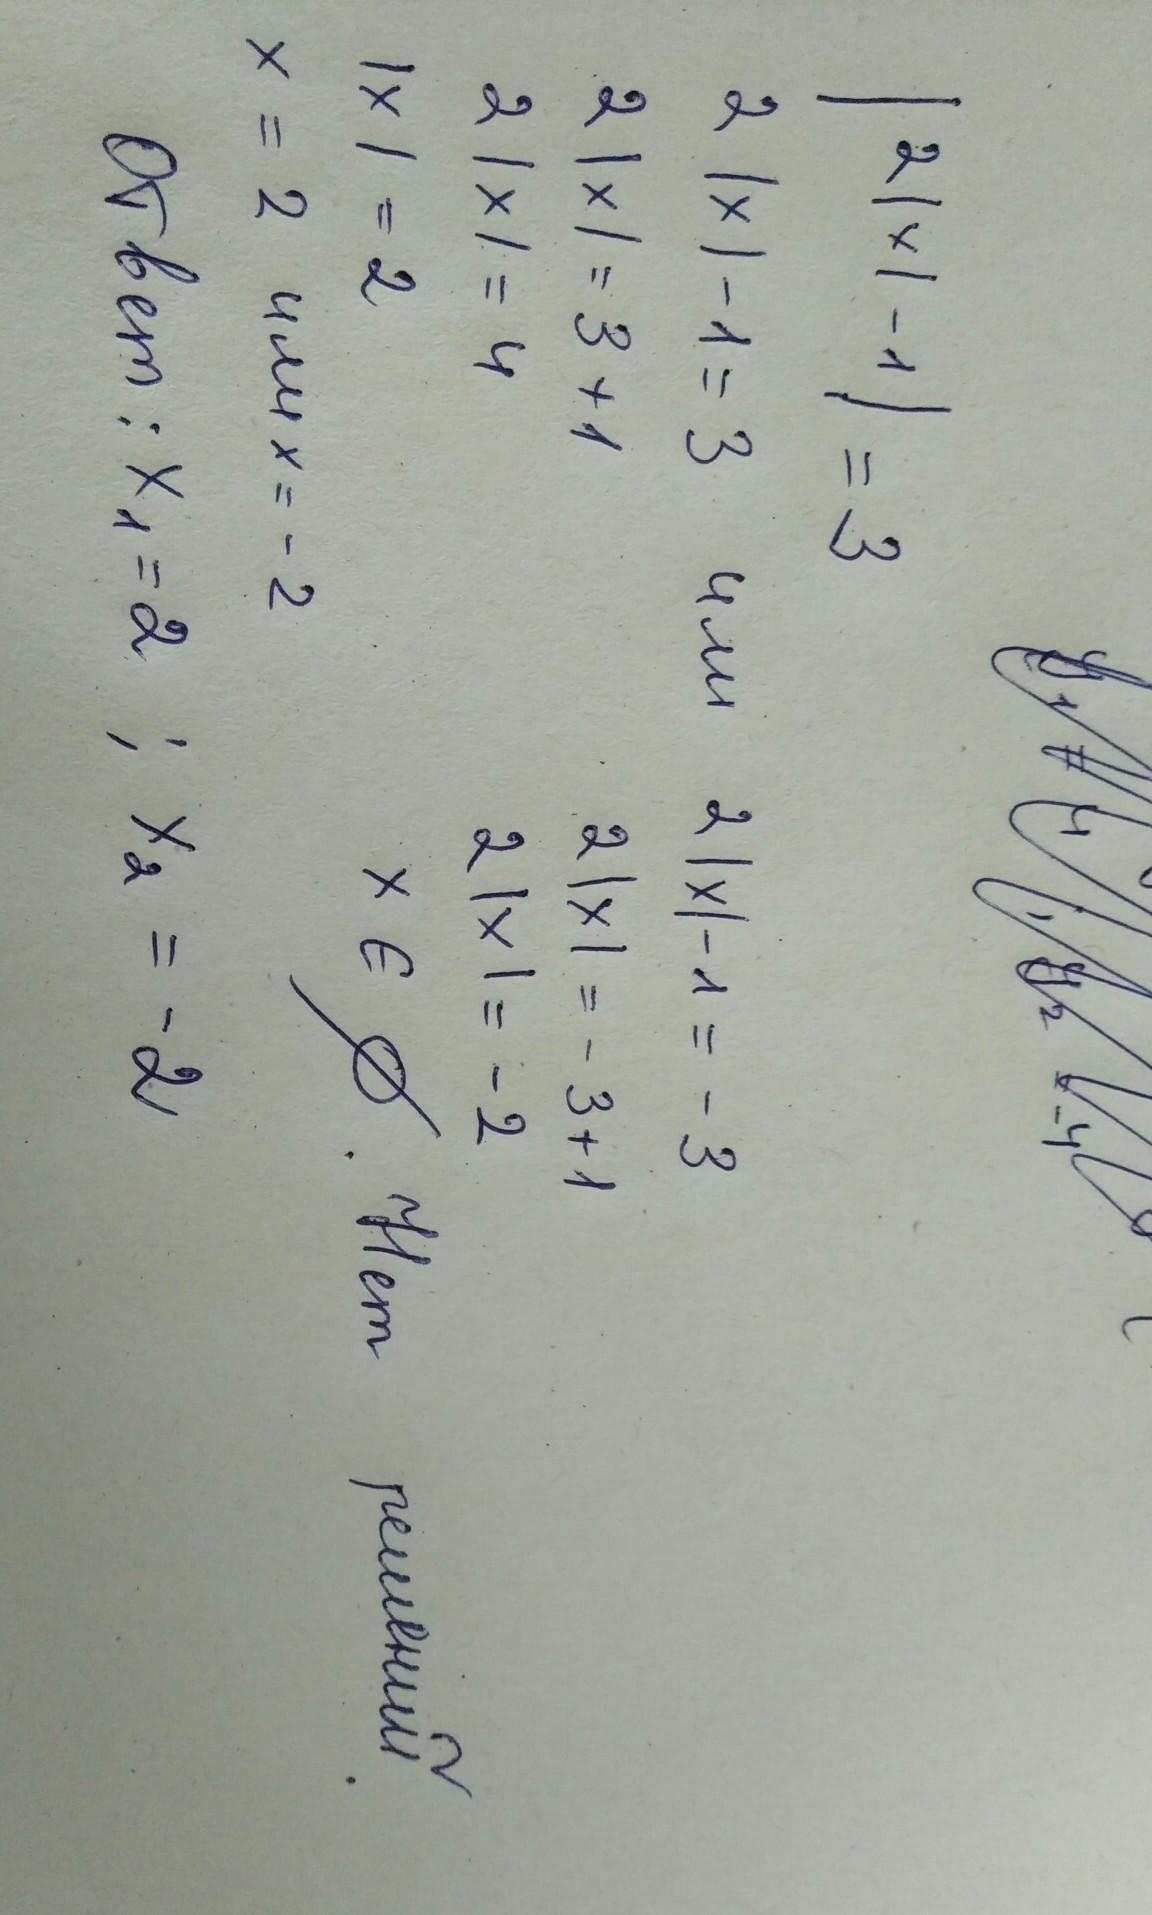 |2|x|-1|=3
2|x|-1=3 или 2|x|-1=-3
2|x|=3+1 2|x|=-3+1
2|x|=4 2|x|=-2
|x|=2 x∈∅. Нет решений.
x=2 или x=-2
Ответ: x₁=2; x₂=-2